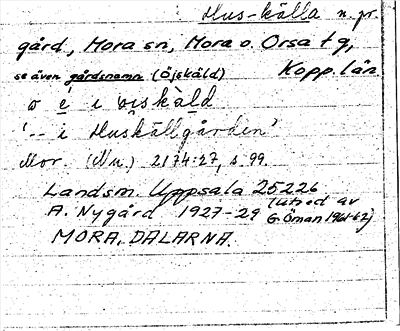 Hus-källa n. pr.
gård, Mora sn, Mora o. Orsa tg,
se även gårdsnamn (Öjskäld) Kopp. län
o é i wiskàld
'-- i Huskällgården'
Mor. (Nu.) 2174:27, s. 99.
Landsm. Uppsala 25226
A. Nygård 1927-29 (utred av G. Öman 1961-62)
MORA, DALARNA.